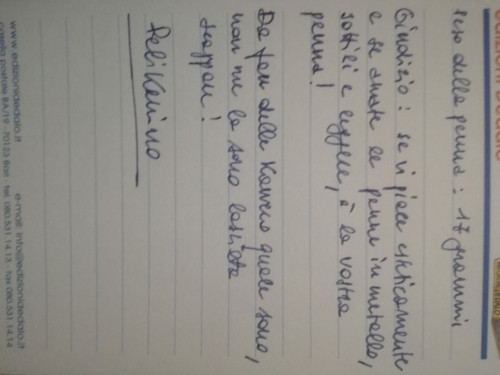 peso della penna: 17 grammi
Giudizio: se vi piace esteticamente
e se amate le penne in metallo,
sottili e leggere, è la vostra
penna!
Da fan della Kaweco quale sono,
non me la sono lasciata
scappare!
Pelikanino
www.edizionidedalo.it
e-mail: info@edizionidedalo.it
casella postale BA/19 - 70123 Bari - tel. 080.531.14.13 - fax 080.531.14.14